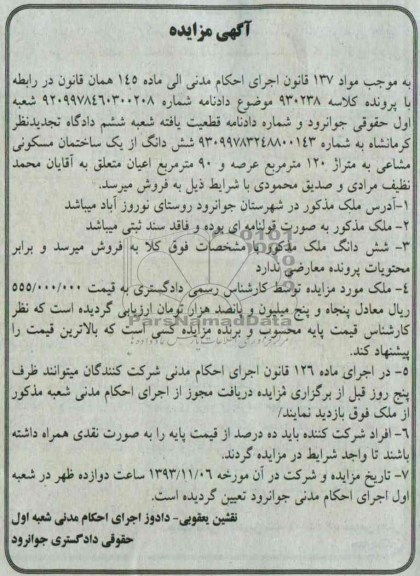 آگهی مزایده
به موجب مواد ۱۳۷ قانون اجرای احکام مدنی الی ماده ۱۴۵ همان قانون در رابطه
با پرونده کلاسه ۹۳۰۲۳۸ موضوع دادنامه شماره ۹۲۰۹۹۷۸۴۶۰۳۰۰۲۰۸ شعبه
اول حقوقی جوانرود و شماره دادنامه قطعیت یافته شعبه ششم دادگاه تجدیدنظر
کرمانشاه به شماره ۹۳۰۹۹۷۸۳۲۴۸۸۰۰۱۴۳ شش دانگ از یک ساختمان مسکونی
مشاعی به متراژ ۱۲۰ مترمربع عرصه و ۹۰ مترمربع اعیان متعلق به آقایان محمد
نظیف مرادی و صدیق محمودی با شرایط ذیل به فروش میرسد.
۱-آدرس ملک مذکور در شهرستان جوانرود روستای نوروز آباد میباشد
۲- ملک مذکور به صورت قولنامه ای بوده و فاقد سند ثبتی میباشد
۳- شش دانگ ملک مذکور با مشخصات فوق کلا به فروش میرسد و برابر
محتویات پرونده معارضی ندارد
۴- ملک مورد مزایده توسط کارشناس رسمی دادگستری به قیمت ۵۵۵/۰۰۰/۰۰۰
ریال معادل پنجاه و پنج میلیون و پانصد هزار تومان ارزیابی گردیده است که نظر
کارشناس قیمت پایه محسوب و برنده مزایده کسی است که بالاترین قیمت را
پیشنهاد کند.
۵- در اجرای ماده ۱۲۶ قانون اجرای احکام مدنی شرکت کنندگان میتوانند ظرف
پنج روز قبل از برگزاری مزایده دریافت مجوز از اجرای احکام مدنی شعبه مذکور
از ملک فوق بازدید نمایند/
۶- افراد شرکت کننده باید ده درصد از قیمت پایه را به صورت نقدی همراه داشته
باشند تا واجد شرایط در مزایده گردند.
۷- تاریخ مزایده و شرکت در آن مورخه ۱۳۹۳/۱۱/۰۶ ساعت دوازده ظهر در شعبه
اول اجرای احکام مدنی جوانرود تعیین گردیده است.
نقشین یعقوبی- دادورز اجرای احکام مدنی شعبه اول
حقوقی دادگستری جوانرود
ParsNamadData